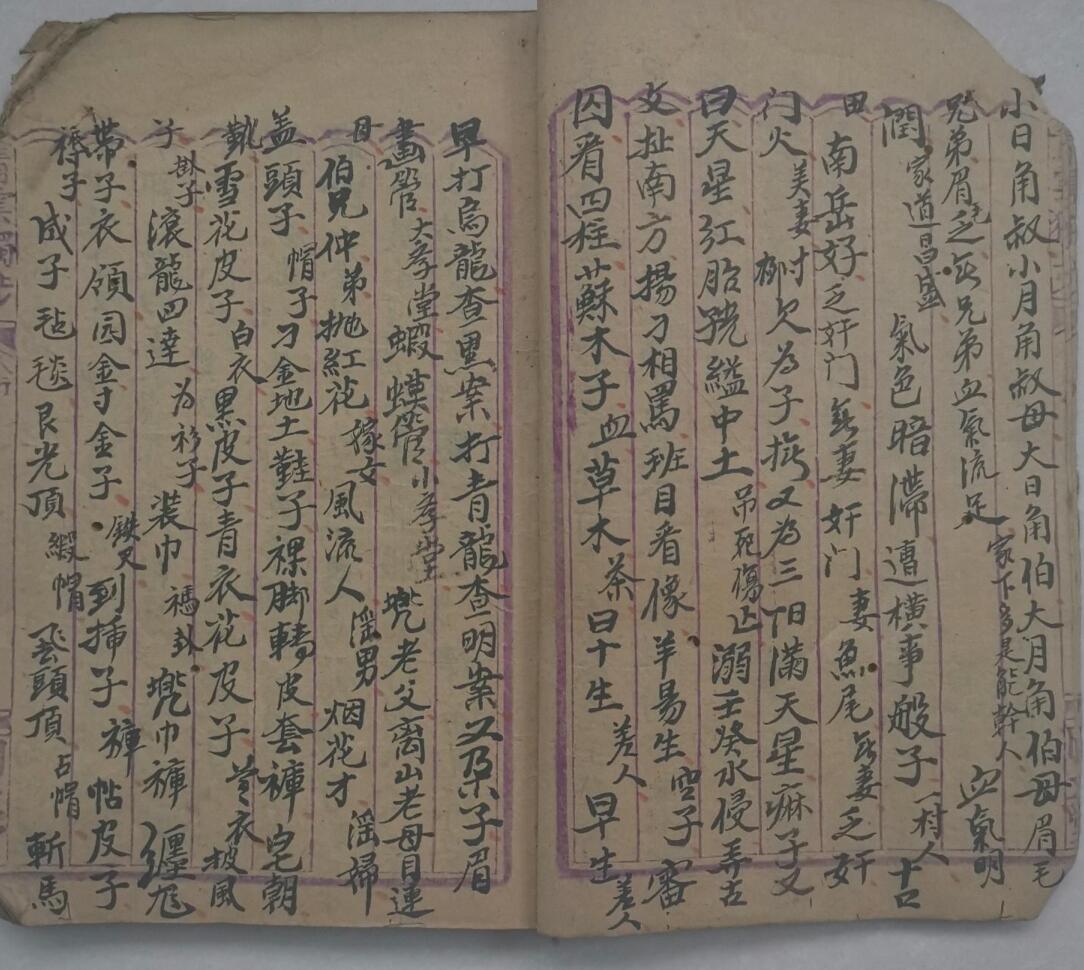 小日角叔小月角叔母大日角伯大月角伯母眉毛
兄弟眉毛乏無兄弟血氣流足家下多是能幹人血氣明
潤家道昌盛氣色暗滯遭橫事般子一村人古
田南岳好乏奸门無妻奸门妻魚尾無妻乏奸
门火美妻欠為子孩又為三阳滿天星痲子又
曰天星红胎孩縊中土吊死傷亾溺壬癸水侵弄古
文扯南方揚刁相罵班目看像羊易生空子審
囚看四柱蘇木子血草木茶日干生差人早生差人
早打烏龍查黑案打青龍查明案又朵子眉
畫管大孝堂蝦蟆管小孝堂兠老父离山老母目連
母伯兄仲弟拋紅花嫁女風流人淫男烟花才淫婦
盖頭子帽子刁金地土鞋子裸脚轎皮套褲皂朝
靴雪花皮子白衣黑皮子青衣花皮子衣披風
子掛子滾龍四達为衫子装巾禡卦兠巾褲纒
帶子衣領园金寸金子鉄尺到插子褲帖皮子
褥子成子毡毯艮光頂緞帽頭頂占帽斬馬